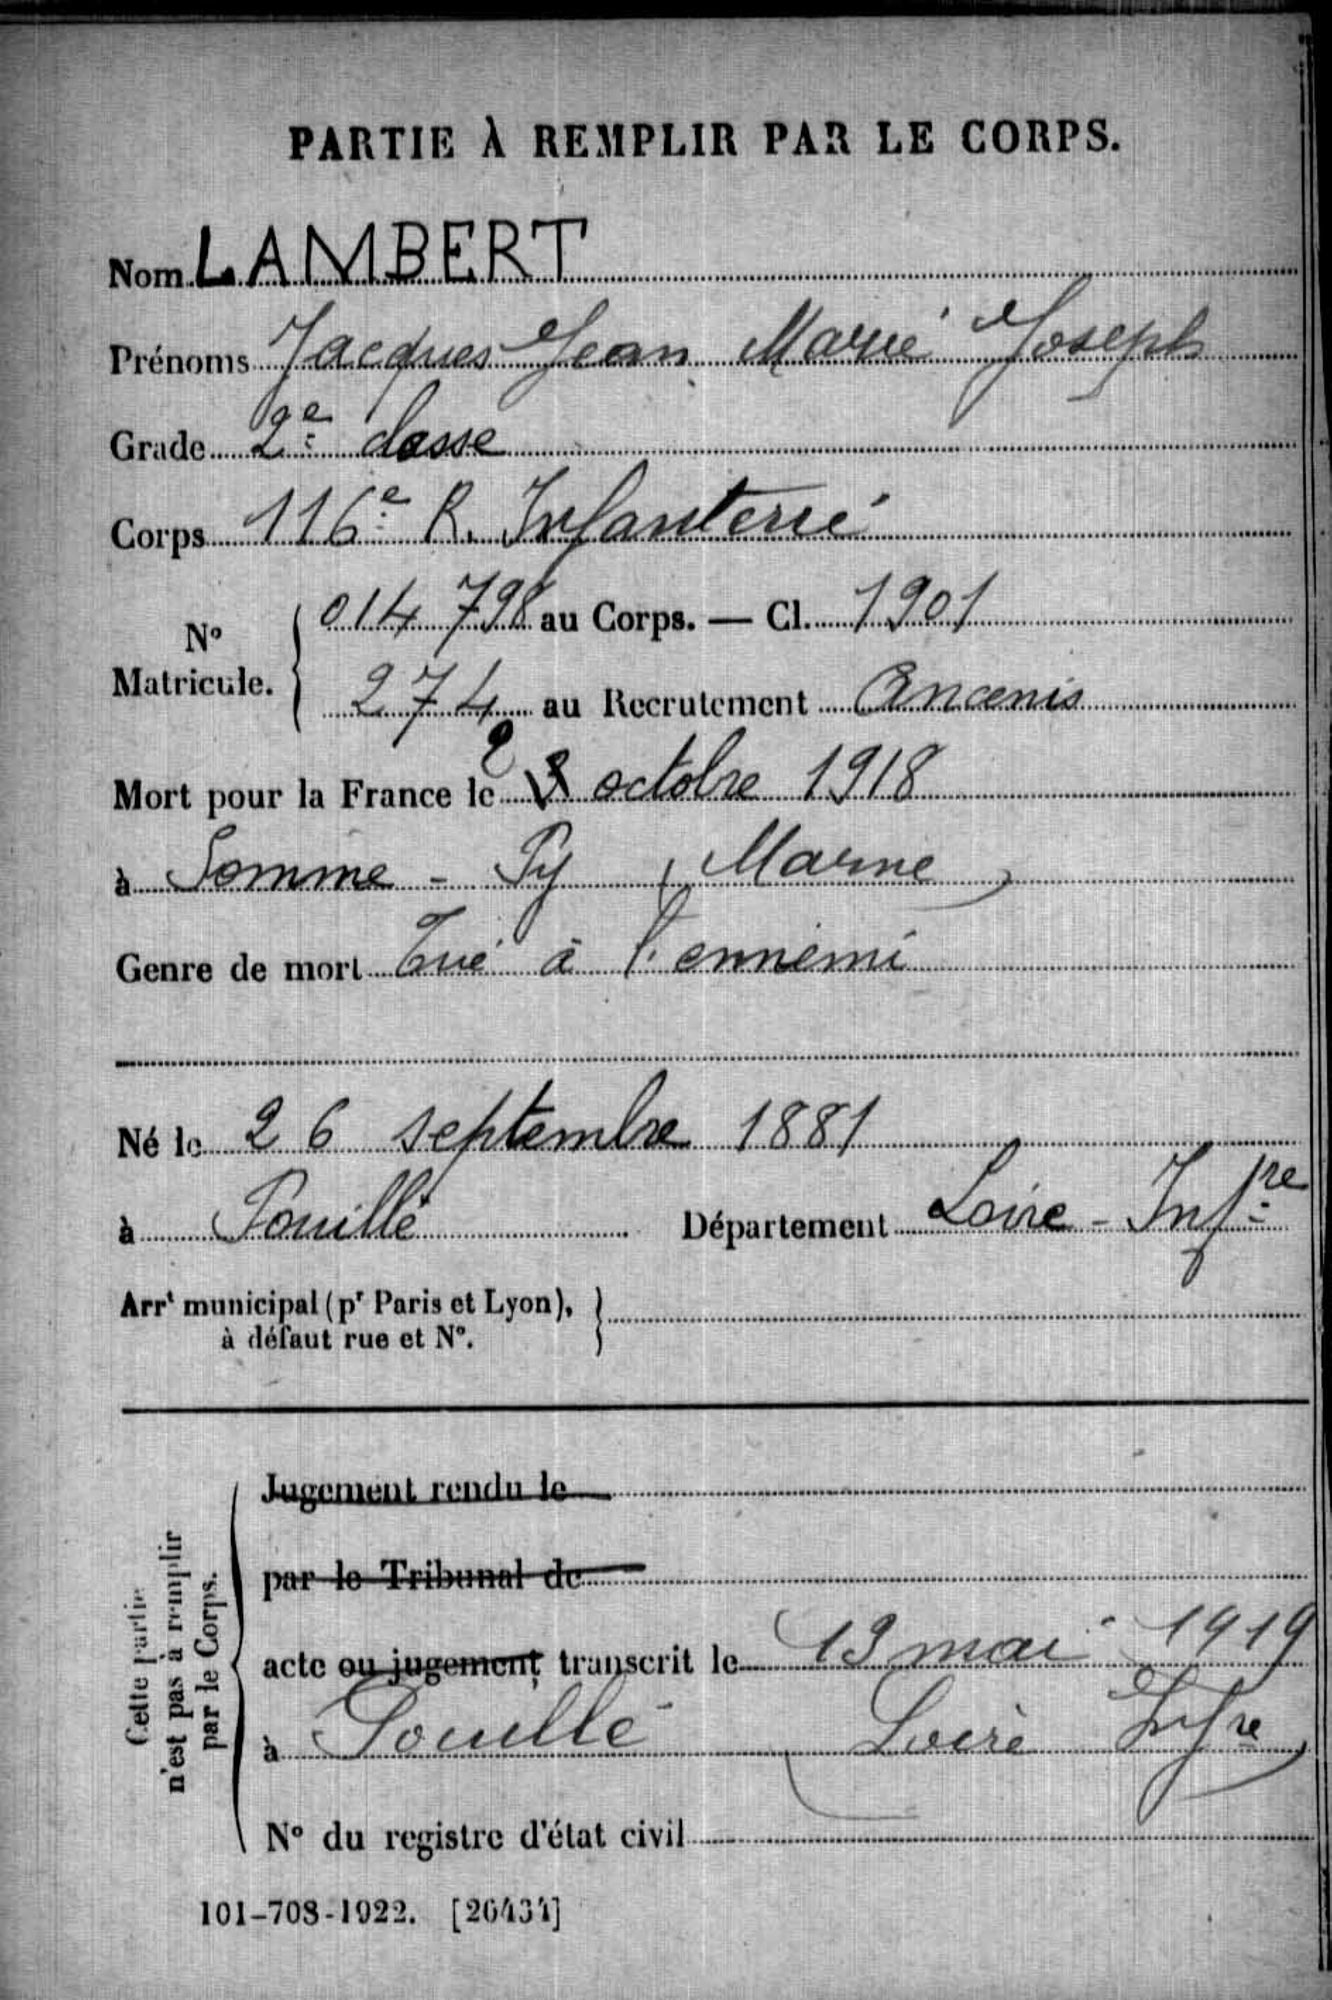 PARTIE À REMPLIR PAR LE CORPS.
Nom LAMBERT
Prénoms Jacques Jean Marie Joseph
Grade 2e classe
Corps 116e R. Infanterie
N° Matricule. 014 798 au Corps. — Cl. 1901
274 au Recrutement Ancenis
Mort pour la France le 2 octobre 1918
à Somme - Py (Marne)
Genre de mort Tué à l'ennemi
Né le 26 septembre 1881
à Pouillé Département Loire - Infre
Arrt municipal (pr Paris et Lyon),
à défaut rue et N°.
Cette partie
n'est pas à remplir
par le Corps.
Jugement rendu le
par le Tribunal de
acte ou jugement transcrit le 13 mai 1919
à Pouillé (Loire Infre)
N° du registre d'état civil
101-708-1922. [26434]